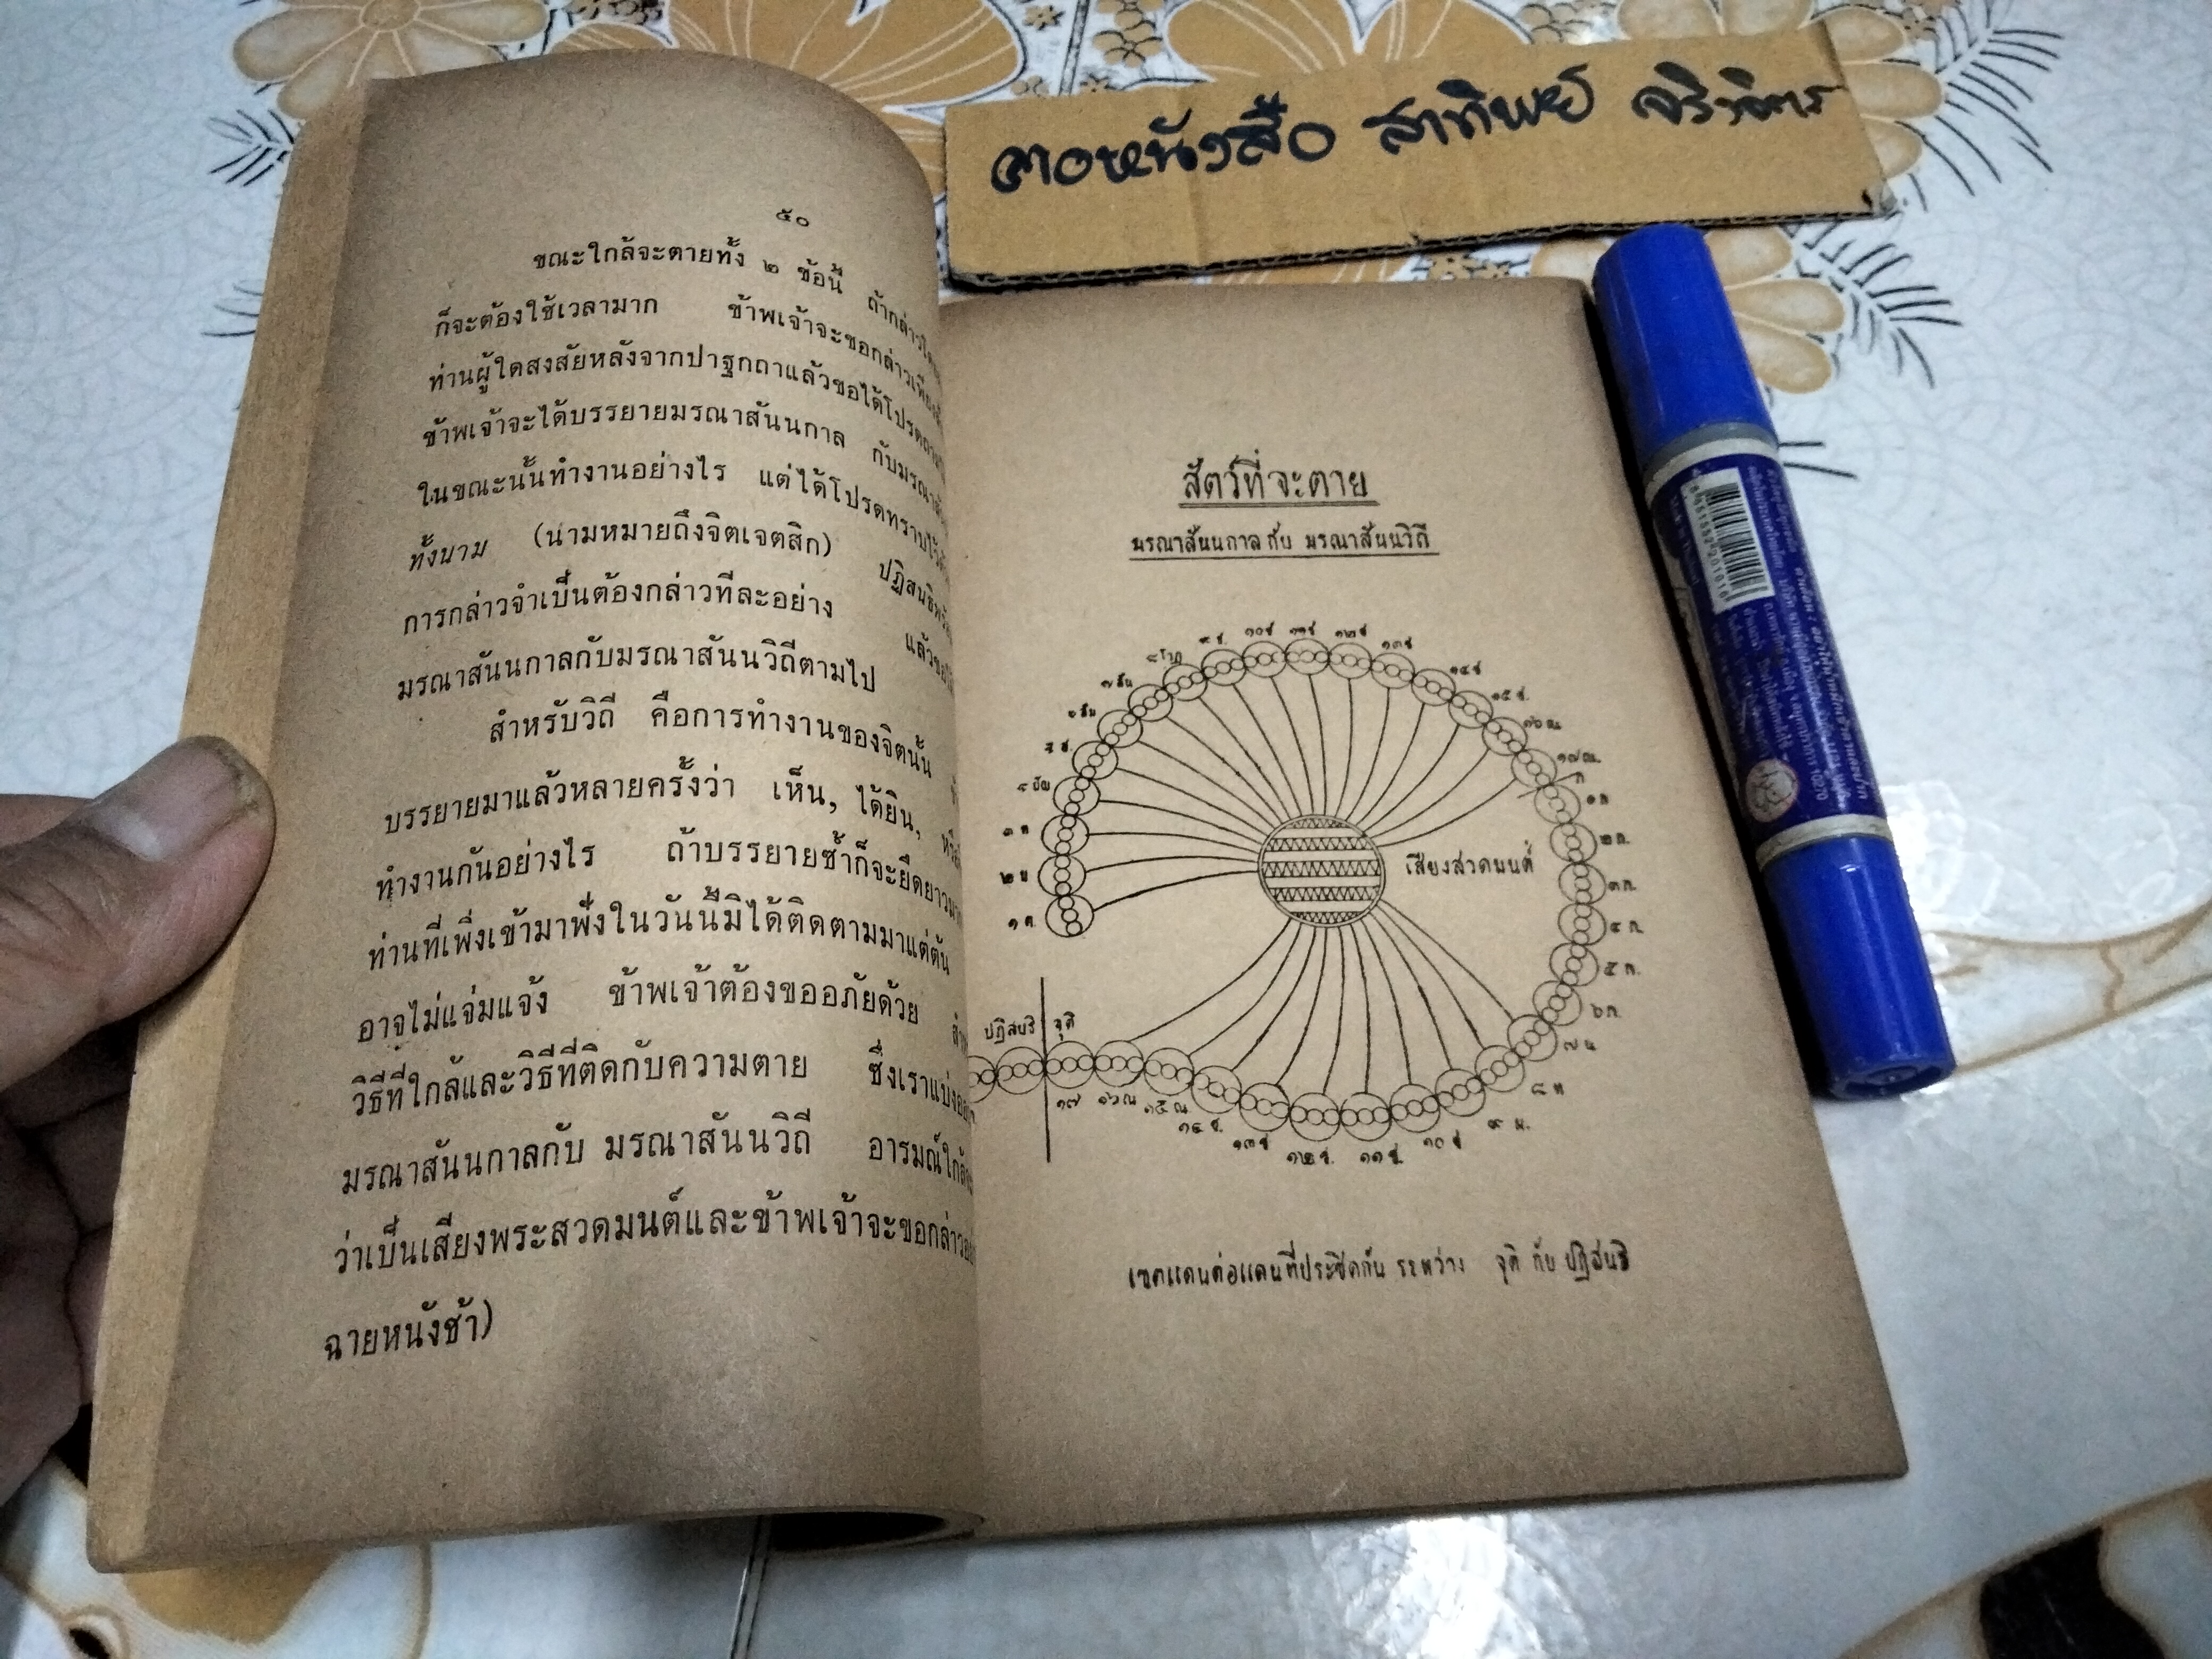 ฅอหนังสือ สาทิพย์ จริงจิตร
๕๐
ขณะใกล้จะตายทั้ง ๒ ข้อนี้ ถ้ากล่าว
ก็จะต้องใช้เวลามาก ข้าพเจ้าจะขอกล่าวเพียง
ท่านผู้ใดสงสัยหลังจากปาฐกถาแล้วขอได้โปรดถาม
ข้าพเจ้าจะได้บรรยายมรณาสันนกาล กับมรณา
ในขณะนั้นทำงานอย่างไร แต่ได้โปรดทราบไว้
ทั้งนาม (นามหมายถึงจิตเจตสิก) ปฏิสนธิ
การกล่าวจำเป็นต้องกล่าวทีละอย่าง แล้ว
มรณาสันนกาลกับมรณาสันนวิถีตามไป
สำหรับวิถี คือการทำงานของจิตนั้น
บรรยายมาแล้วหลายครั้งว่า เห็น, ได้ยิน,
ทำงานกันอย่างไร ถ้าบรรยายซ้ำก็จะยืดยาว
ท่านที่เพิ่งเข้ามาฟังในวันนี้มิได้ติดตามมาแต่ต้น
อาจไม่แจ่มแจ้ง ข้าพเจ้าต้องขออภัยด้วย
วิธีที่ใกล้และวิธีที่ติดกับความตาย ซึ่งเราแบ่ง
มรณาสันนกาลกับ มรณาสันนวิถี อารมณ์ใกล้
ว่าเป็นเสียงพระสวดมนต์และข้าพเจ้าจะขอกล่าว
ฉายหนังช้า)
สัตว์ที่จะตาย
มรณาสันนกาลกับ มรณาสันนวิถี
๙ ช. ๑๐ช ๑๑ช ๑๒ช ๑๓ช ๑๔ช ๑๕ ช.
๑๗ณ.
๒ก.
๓ก.
๔ ก.
๕ ก.
๖ก.
เสียงสวดมนต์
ปฏิสนธิ จุติ
๑๗ ๑๖ณ ๑๕ณ. ๑๔ ช. ๑๓ช ๑๒ช. ๑๑ช. ๑๐ช
เขตแดนต่อแดนที่ประชิดกัน ระหว่าง จุติ กับ ปฏิสนธิ